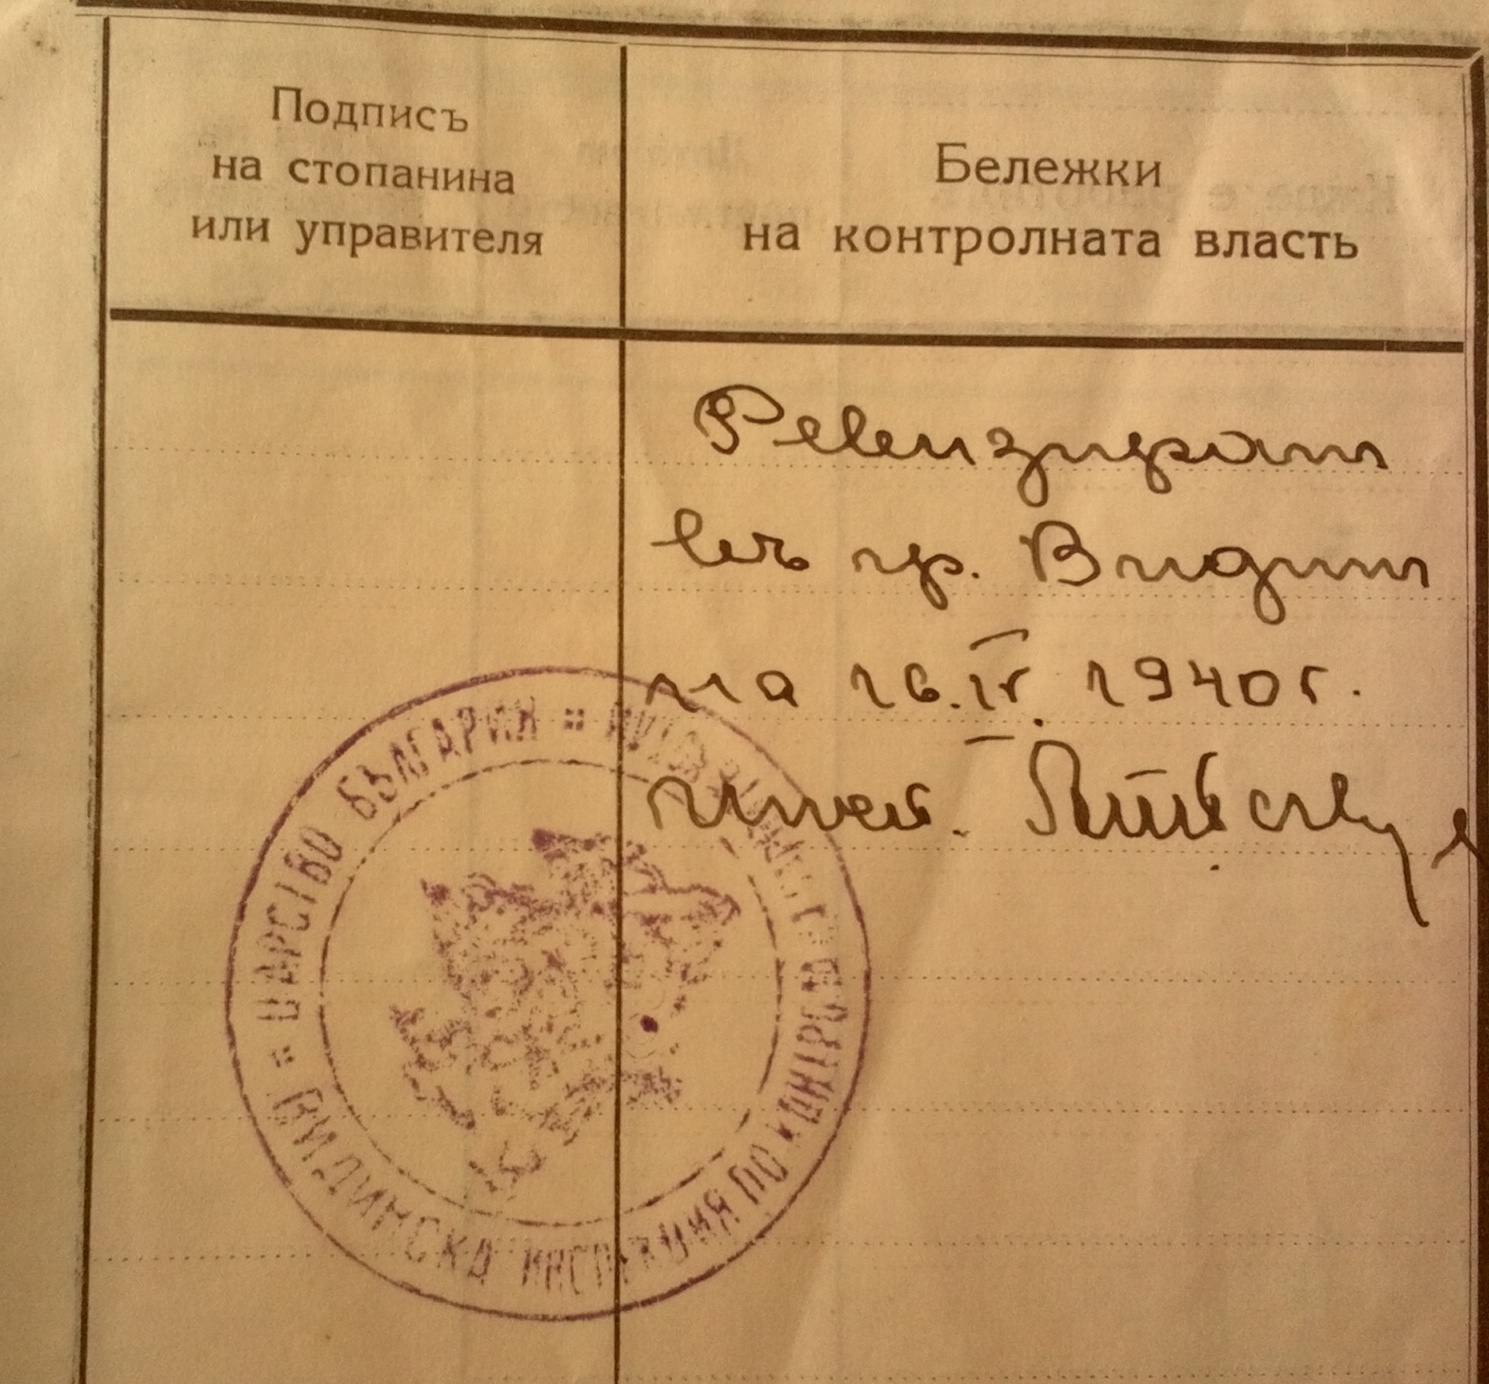 Подписъ
на стопанина
или управителя
Бележки
на контролната власть
Ревизиран
въ гр. Видин
на 16.IV.1940 г.
ЦАРСТВО БЪЛГАРИЯ
ВИДИНСКА ИНСПЕКЦИЯ ПО